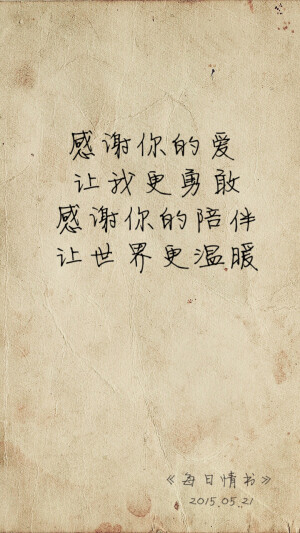 感谢你的爱
让我更勇敢
感谢你的陪伴
让世界更温暖
《每日情书》
2015.05.21